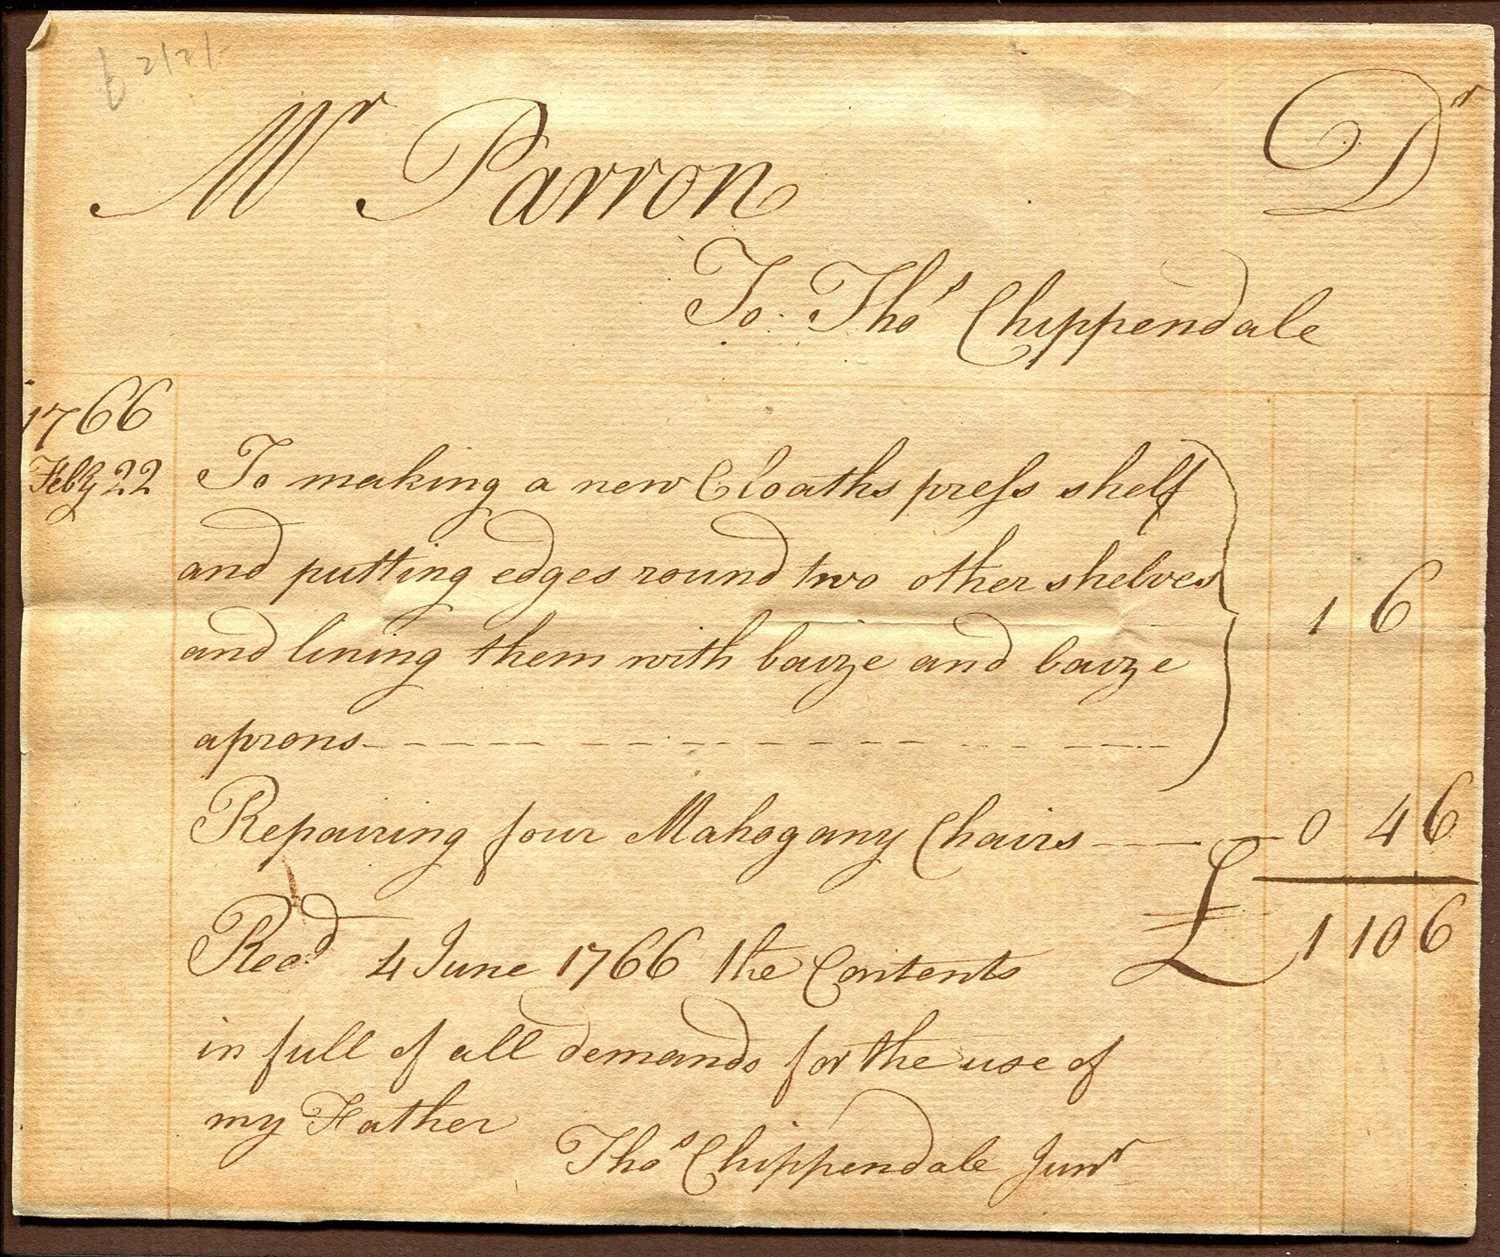 Mr Parron Dr
To Thos Chippendale
1766
Feby 22 To making a new Cloaths press shelf
and putting edges round two other shelves
and lining them with baize and baize 1 6
aprons
Repairing four Mahogany Chairs 0 4 6
£ 1 10 6
Recd 4 June 1766 the Contents
in full of all demands for the use of
my Father
Thos Chippendale Junr